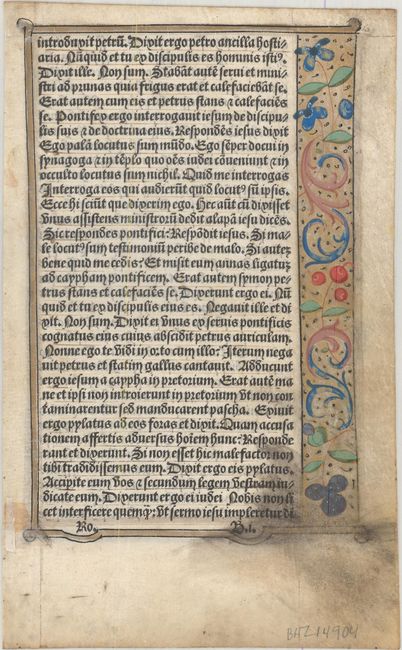 introduxit petrū. Dixit ergo petro ancilla hosti-
aria. Nūquid et tu ex discipulis es hominis istiꝰ.
Dixit ille. Non sum. Stabāt autē serui et mini-
stri ad prunas quia frigus erat et calefaciebāt se.
Erat autem cum eis et petrus stans ⁊ calefaciēs
se. Pontifex ergo interrogauit iesum de discipu-
lis suis ⁊ de doctrina eius. Respondēs iesus dixit
Ego palā locutus sum mūdo. Ego sēper docui in
synagoga ⁊ in tēplo quo oēs iudei cōueniunt ⁊ in
occulto locutus sum nichil. Quid me interrogas
Interroga eos qui audierūt quid locutꝰ sū ipsis.
Ecce hi sciūt que dixerim ego. Hec aūt cū dixisset
vnus assistens ministrorū dedit alapā iesu dicēs.
Sic respondes pontifici: Respōdit iesus. Si ma-
le locutꝰ sum testimoniū peribe de malo. Si autez
bene quid me cedis: Et misit eum annas ligatuz
ad caypham pontificem. Erat autem symon pe-
trus stans et calefaciēs se. Dixerunt ergo ei. Nū
quid et tu ex discipulis eius es. Negauit ille et di
xit. Non sum. Dixit ex vnus ex seruis pontificis
cognatus eius cuius abscidit petrus auriculam.
Nonne ego te vidi in orto cum illo: Iterum nega
uit petrus et statim gallus cantauit. Adducunt
ergo iesum a caypha in pretorium. Erat autē ma
ne et ipsi non introierunt in pretorium vt non con
taminarentur sed manducarent pascha. Exiuit
ergo pylatus ad eos foras et dixit. Quam accusa
tionem affertis aduersus hoīem hunc: Responde
runt et dixerunt. Si non esset hic malefactor non
tibi tradidissemus eum. Dixit ergo eis pylatus.
Accipite eum vos ⁊ secundum legem vestram iu-
dicate eum. Dixerunt ergo ei iudei Nobis non li
cet interficere quemꝙ: vt sermo iesu impleretur
Ro. B.i.
BHZ14904